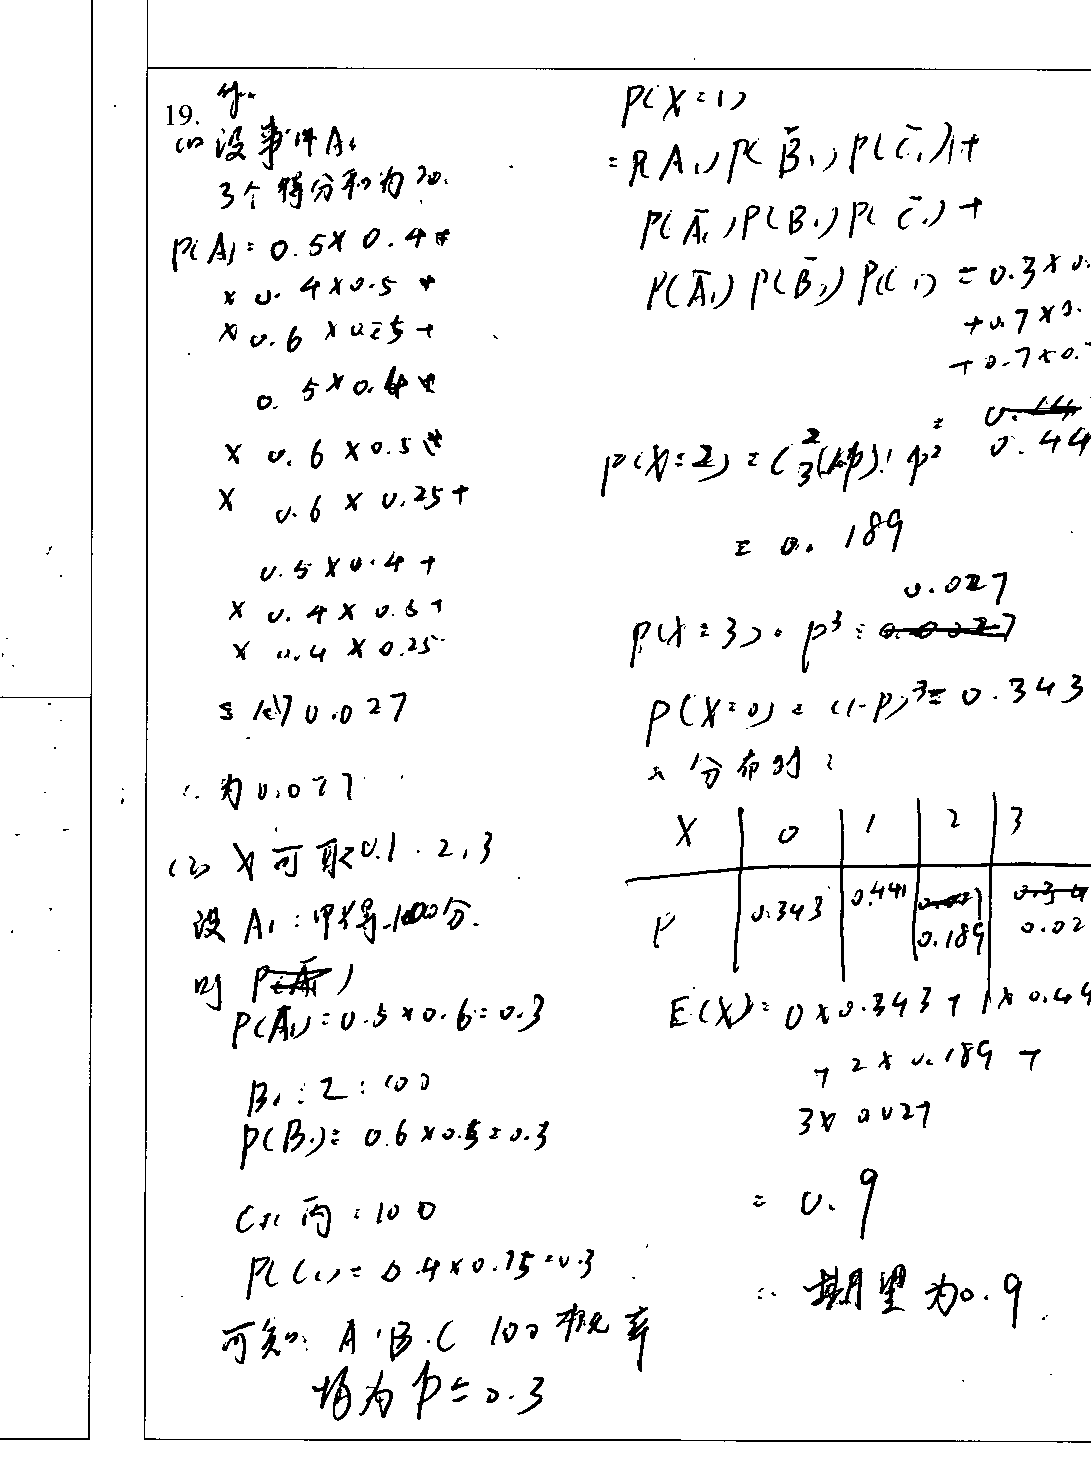 19. 解:
(1) 设事件A:
3个得分和为20.
P(A)= 0.5×0.4×
×0.4×0.5+
×0.6×0.25+
0.5×0.4×
×0.6×0.5×
×0.6×0.25+
0.5×0.4+
×0.4×0.5+
×0.4×0.25
=0.027
∴为0.027
(2) X可取0.1.2.3
设A₁:甲得100分.
则
P(A₁)=0.5×0.6=0.3
B₁:乙:100
P(B₁)=0.6×0.5=0.3
C₁:丙:100
P(C₁)=0.4×0.75=0.3
可知:A.B.C 100概率
均为p=0.3
P(X=1)
=P(A₁)P(B̄₁)P(C̄₁)+
P(Ā₁)P(B₁)P(C̄₁)+
P(Ā₁)P(B̄₁)P(C₁)=0.3×0.
+0.7×0.
+0.7×0.
=
0.44
P(X=2)=C₃²(1-p)¹p²
=0.189
0.027
P(X=3)=p³=
P(X=0)=(1-p)³=0.343
∴分布列:
X 0 1 2 3
P 0.343 0.441 0.189 0.02
E(X)=0×0.343+1×0.44
+2×0.189+
3×0.027
=0.9
∴期望为0.9.